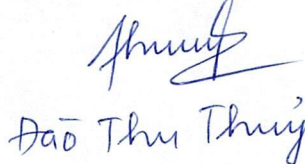 Đào Thu Thuỷ